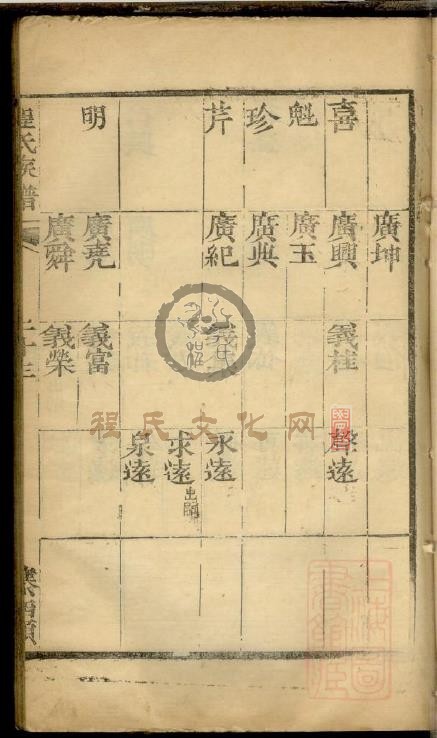 廣坤
喜
廣興
義桂
聲遠
魁
廣玉
珍
廣典
芹
廣紀
永遠
求遠
出嗣
泉遠
明
廣堯
義富
廣舜
義榮
程氏宗譜
程氏文化网